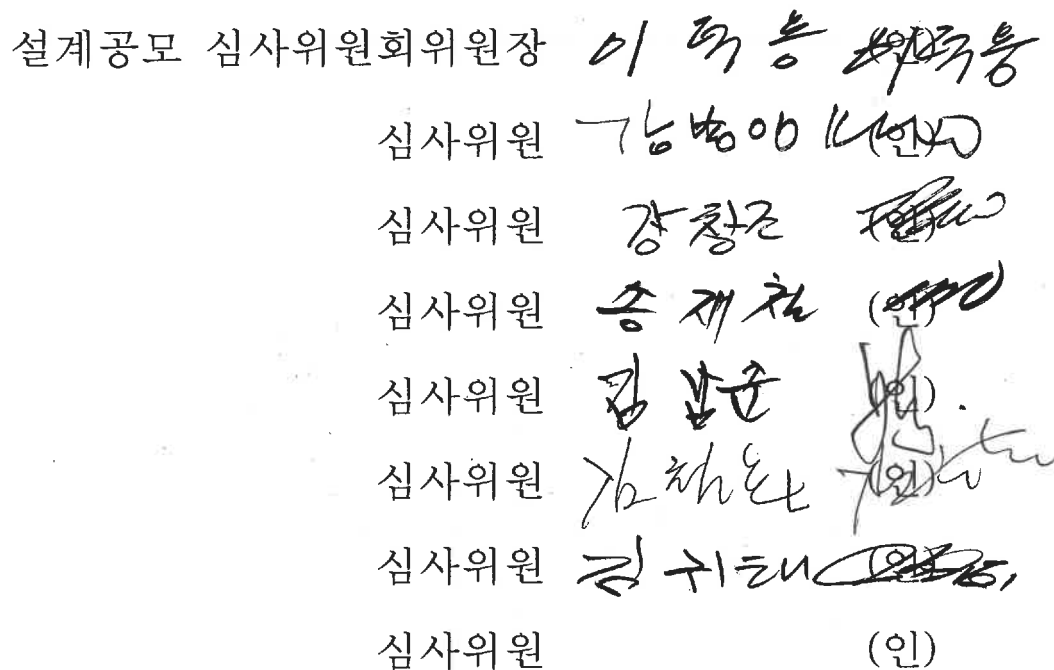 설계공모 심사위원회위원장 이덕흥 (인)
심사위원 (인)
심사위원 강창근 (인)
심사위원 송재철 (인)
심사위원 김갑순 (인)
심사위원 김철환 (인)
심사위원 김귀태 (인)
심사위원 (인)